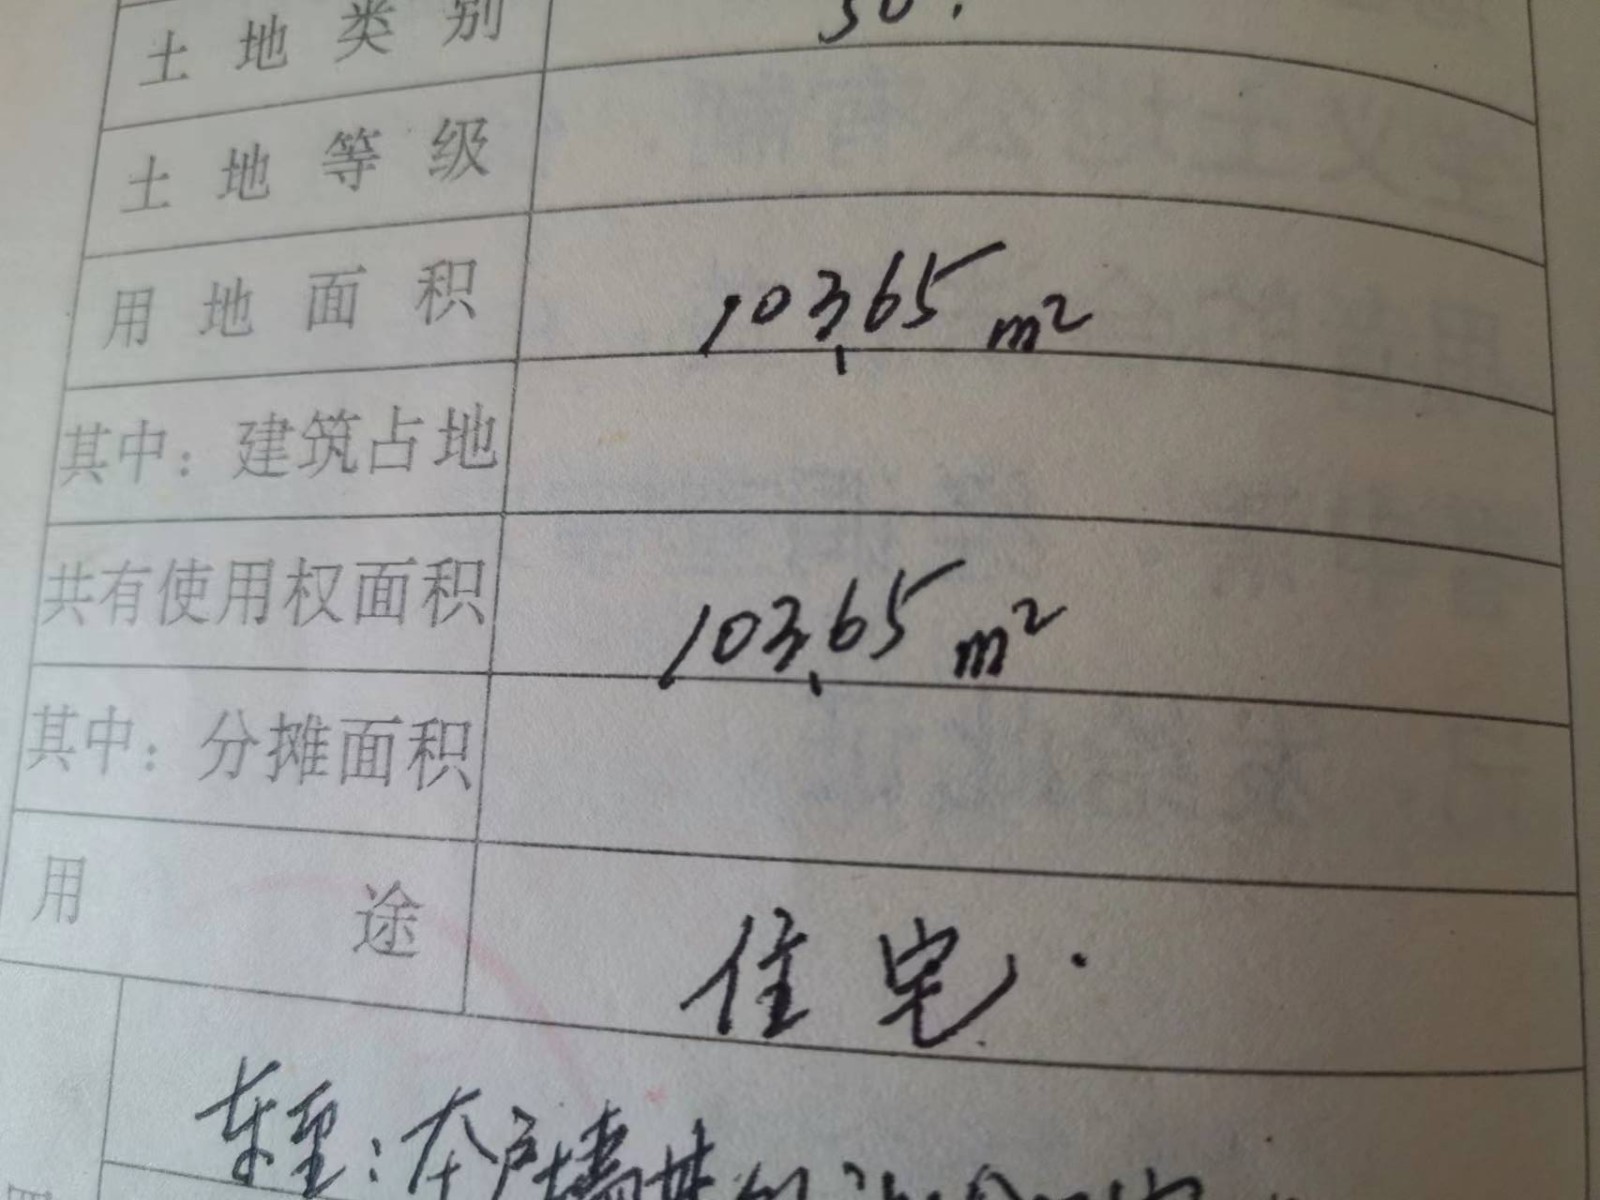 土地类别
土地等级
用地面积 103.95m²
其中：建筑占地
共有使用权面积 103.95m²
其中：分摊面积
用途 住宅.
东至：